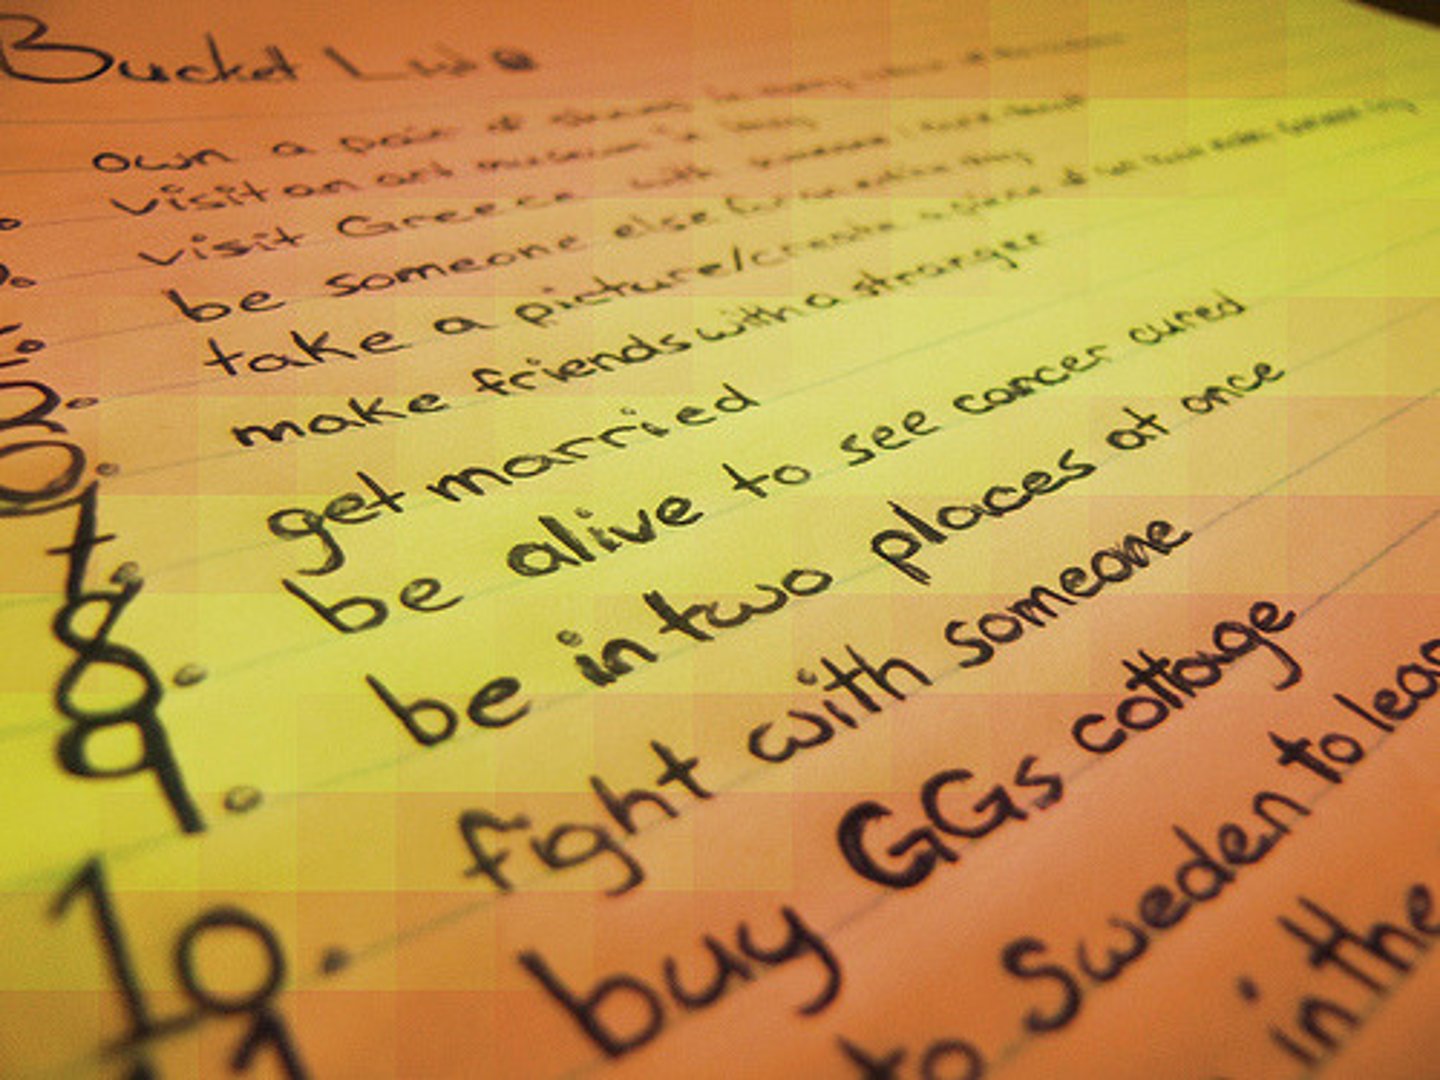 Bucket List
own a pair of
visit an art museum in
visit Greece with someone I
be someone else for an entire day
take a picture/create a piece of
make friends with a stranger
7. get married
8. be alive to see cancer cured
9. be in two places at once
10. fight with someone
11. buy GGs cottage
to Sweden to
in the